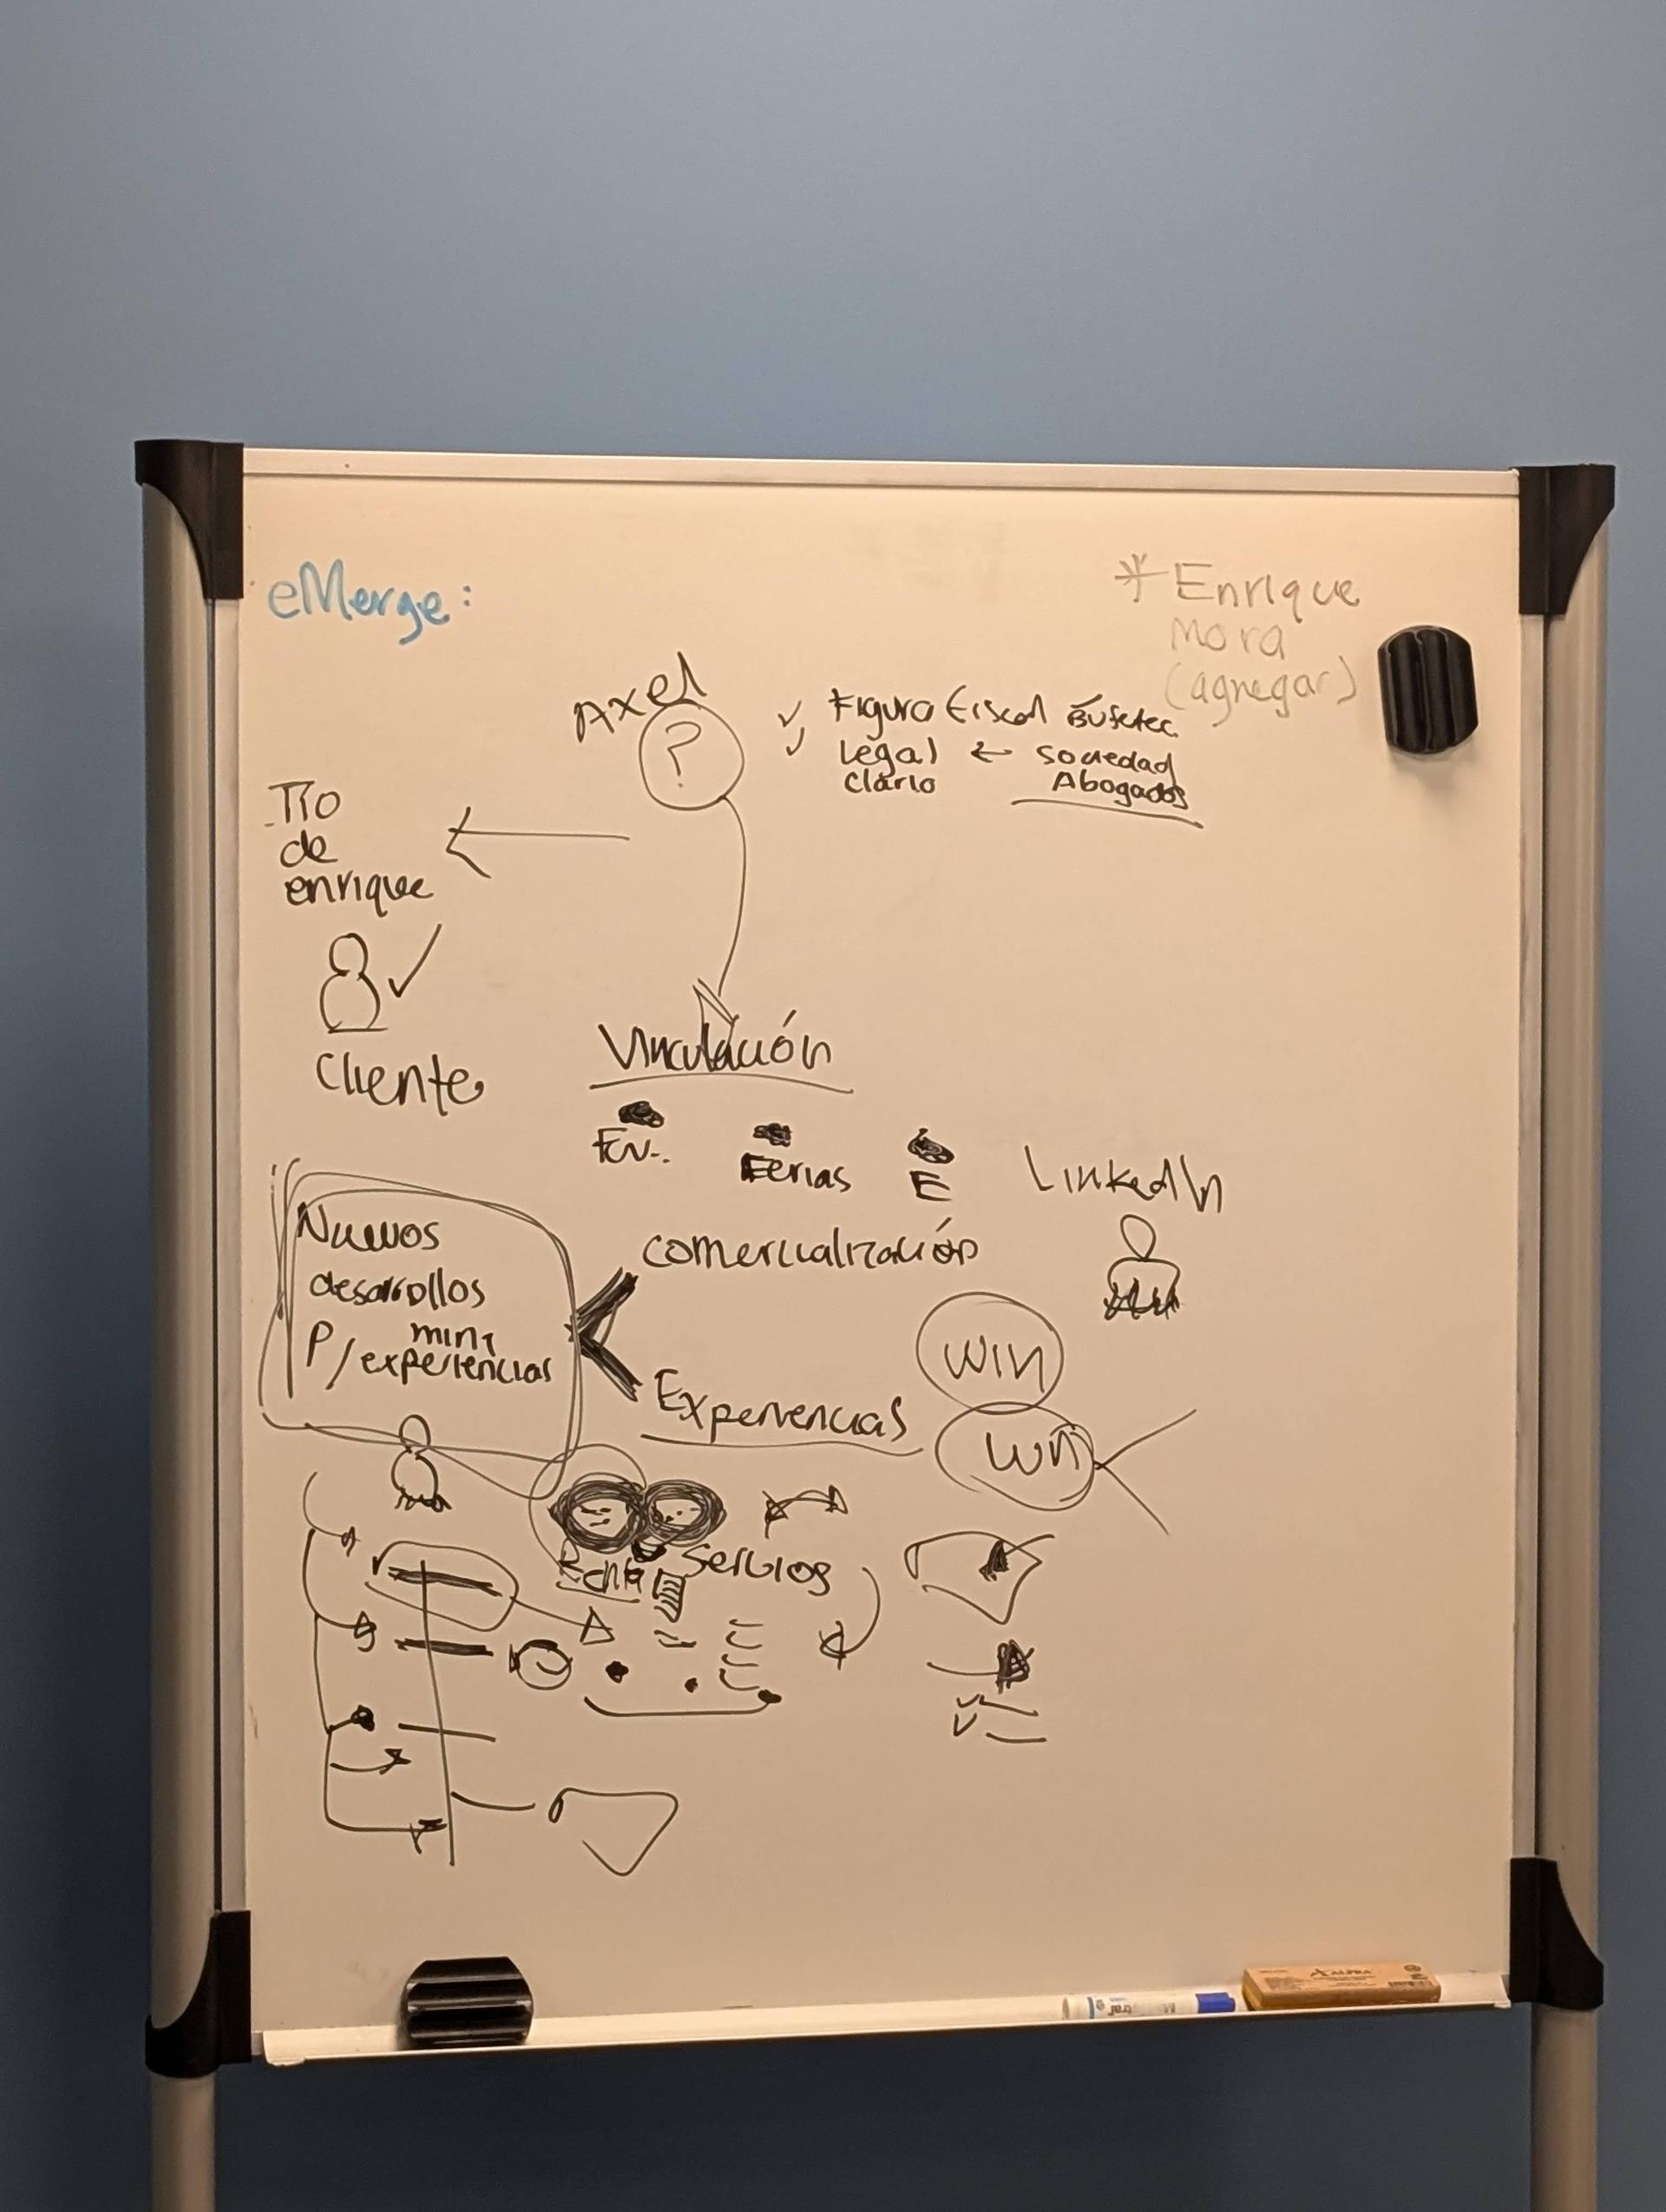 eMerge:
* Enrique
Mora
(agregar)
Axel
?
✓ Figura Fiscal Bufetec.
✓ Legal ← Sociedad
Clario Abogados
Tío
de
enrique
✓
Cliente
Vinculación
Ev..
Ferias
E
LinkedIn
Nuevos
desarollos
mini
P/experiencias
comercialización
Experiencias
win
wn
Renta
Servios